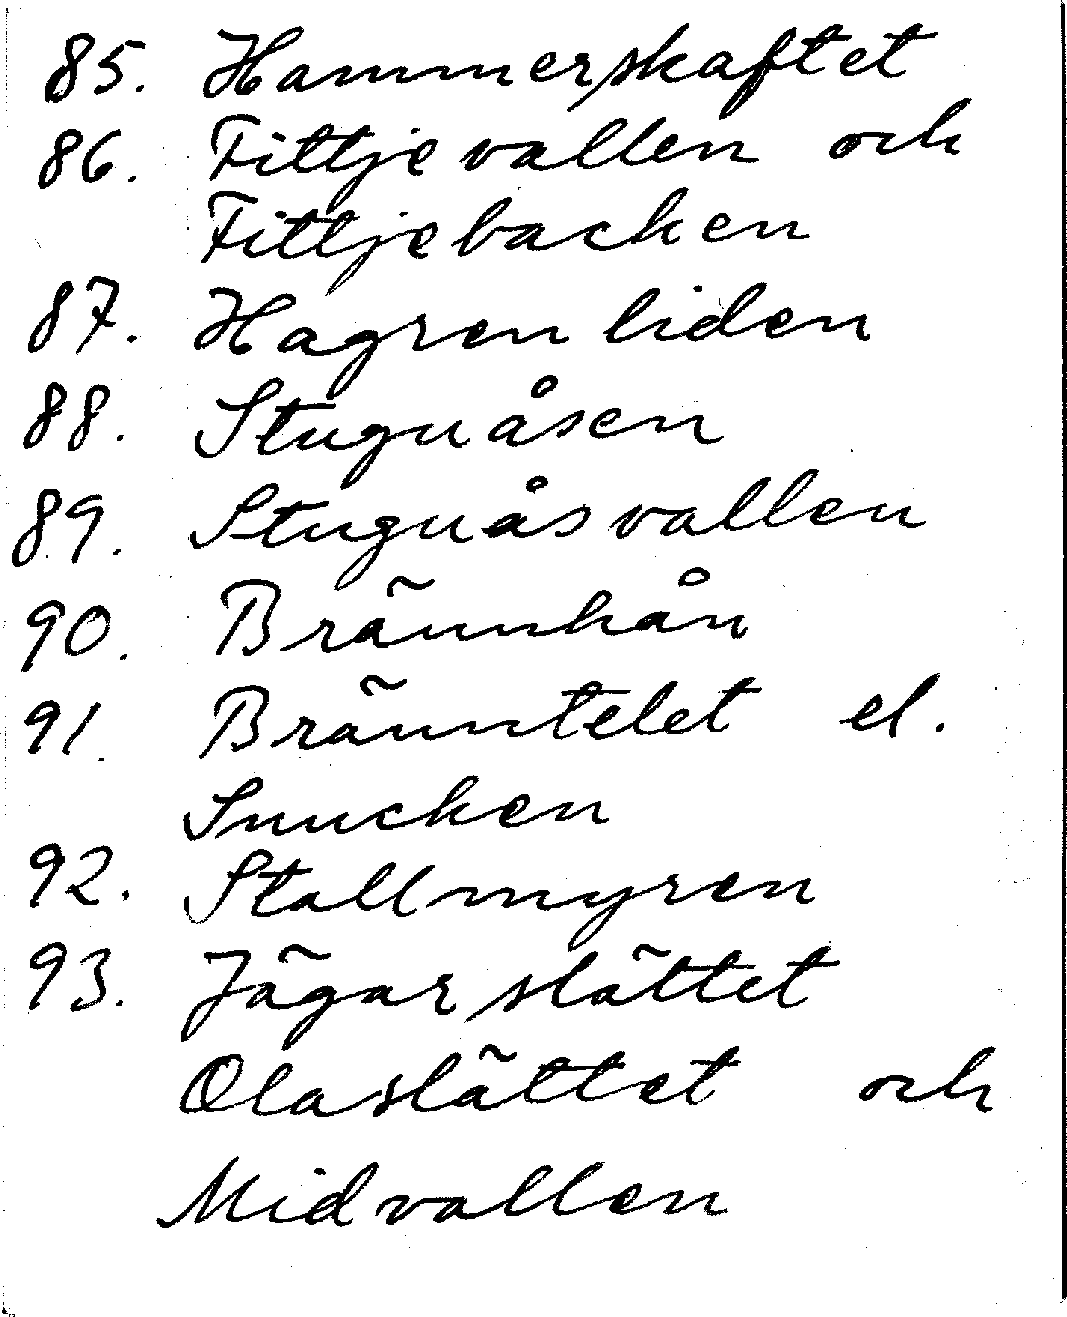 85. Hammerskaftet
86. Fittjevallen och
Fittjebacken
87. Hagrenliden
88. Stuguåsen
89. Stuguåsvallen
90. Brännhån
91. Bränntelet el.
Snucken
92. Stallmyren
93. Jägarslåttet
Olaslåttet och
Midvallen